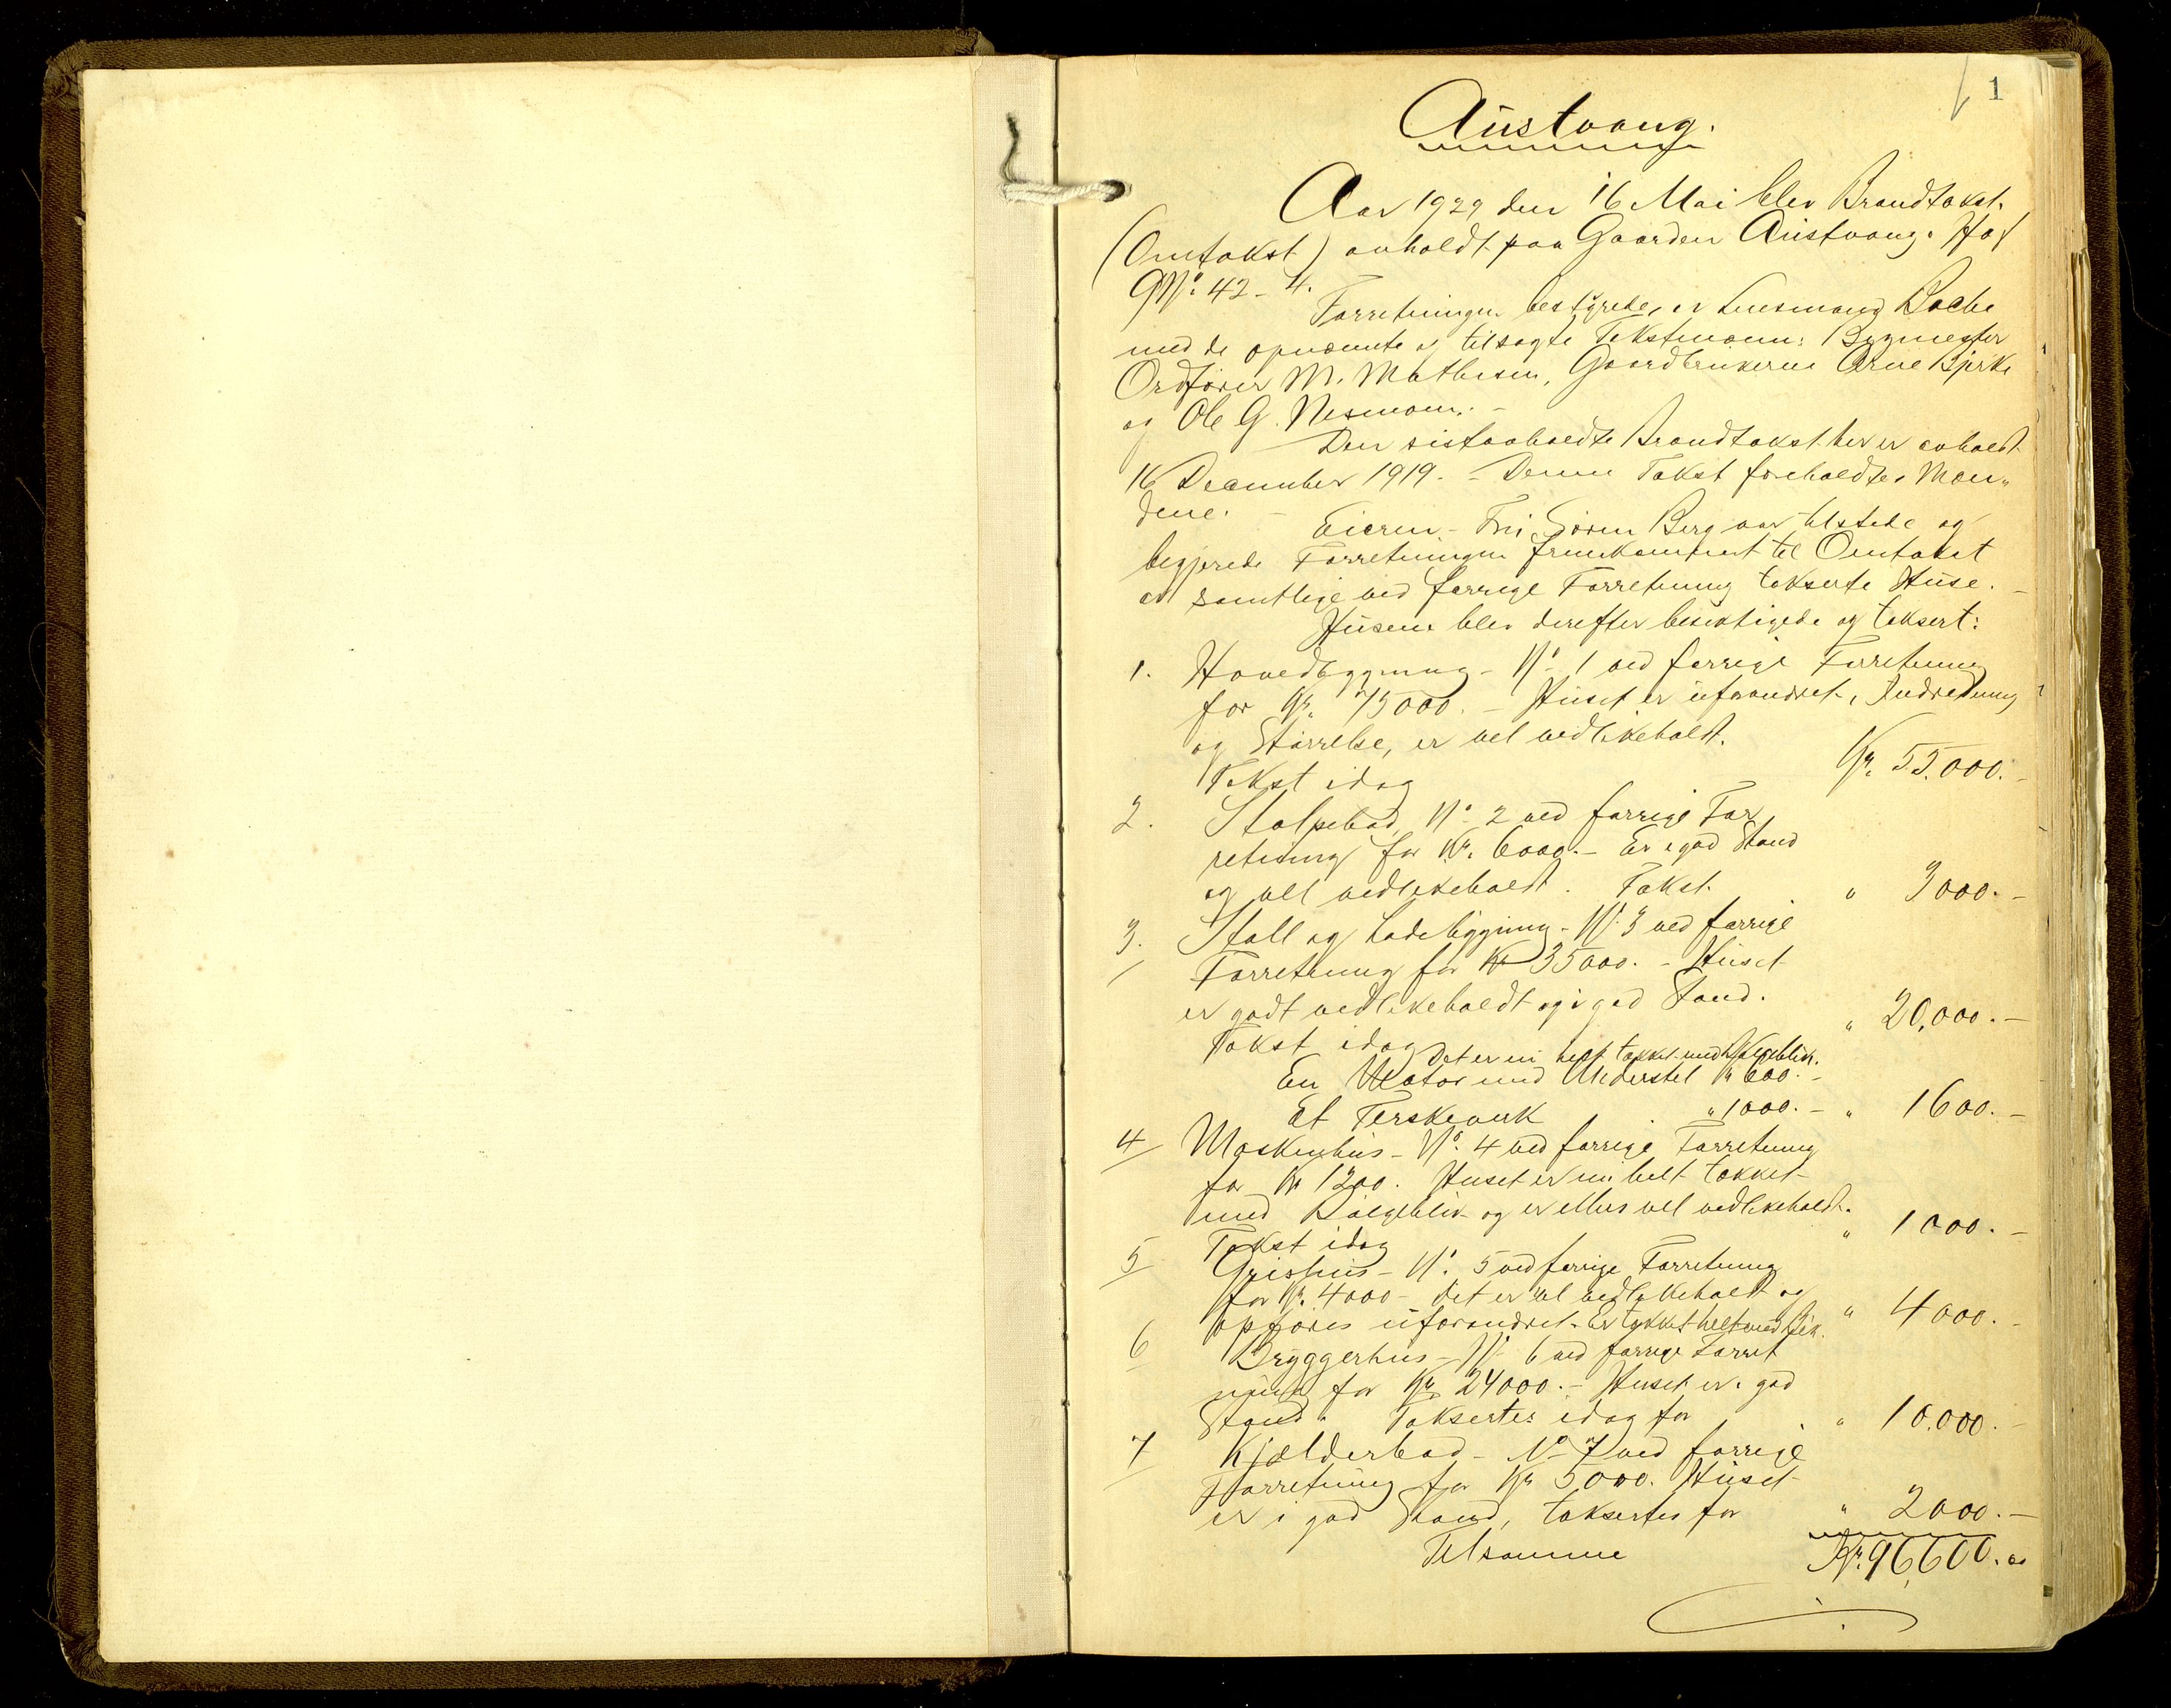 1
Austvang.
Aar 1929 den 16 Mai blev Brandtakst
(Omtakst) avholdt paa Gaarden Austvang. Hof
GNº 42-4.
Forretningen bestyredes av Lensmand Bache
med de opnævnte og tilsagte Takstmænn: Bygmester
Ordfører M. Mathisen, Gaardbrukerne Arne Bjerke
og Ole G. Nesmoen. -
Den sistavholdte Brandtakst her er avholdt
16 December 1919. - Denne Takst foreholdtes Mæn„
dene. -
Eieren - Søren Berg var tilstede og
begjærede Forretningen fremkommet til Omtakst
av samtlige ved forrige Forretning takserte Huse. -
Husene blev derefter besigtigede og taksert:
1. Hovedbygning - Nº 1 ved forrige Forretning
for Kr. 75000. - Huset er uforandret i Indretning
og Størrelse, er vel vedlikeholdt.
Takst idag Kr. 55.000. -
2. Stolpebod Nº 2 ved forrige For
retning for Kr. 6000. - Er i god Stand
og vel vedlikeholdt. Takst " 3000. -
3. Stall og Ladebygning - Nº 3 ved forrige
Forretning for Kr 35000. - Huset
er godt vedlikeholdt og i god Stand.
Takst idag " 20,000. -
Det er nu helt tækket med Bølgeblik.
En Motor med Understel Kr 600. -
Et Terskeverk " 1000. - " 1600. -
4 Maskenhus - Nº 4 ved forrige Forretning
for Kr 1200. Huset er nu helt tækket
med Bølgeblik og er ellers vel vedlikeholdt.
Takst idag " 1000. -
5 Grishus - Nº 5 ved forrige Forretning
for Kr. 4000 - det er vel vedlikeholdt og
opføres uforandret. Er tækket helt med blik. " 4000. -
6 Bryggerhus - Nº 6 ved forrige Forret
ning for Kr 24000. - Huset er i god
Stand. Taksertes idag for " 10.000. -
7 Kjælderbod - Nº 7 ved forrige
Forretning for Kr 5000. Huset
er i god Stand, taksertes for " 2000. -
Tilsamme Kr. 96,600. oo